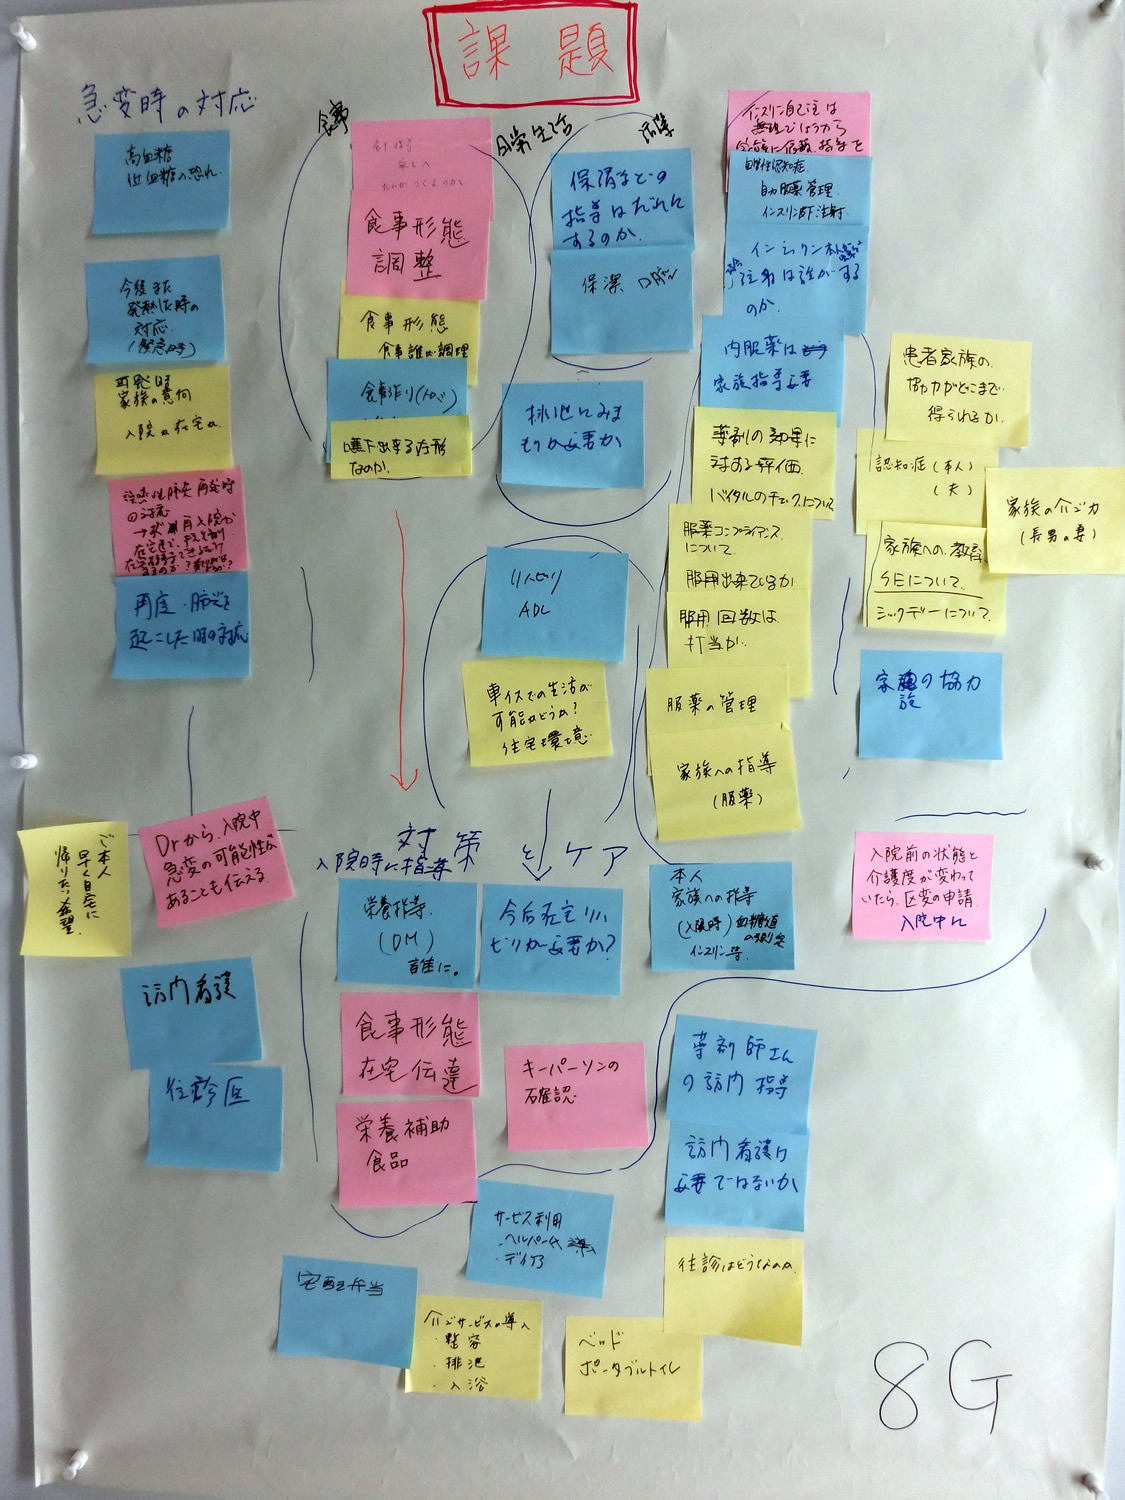 課題
急変時の対応
高血糖
低血糖の恐れ
今後また
発熱した時の
対応
(緊急時)
再発時
家族の意向
入院か在宅か
肺炎 再発時
の対応
再入院か
再度、肺炎を
起こした時の対応
食事
食事形態
調整
食事形態
食事誰が調理
食事作り
嚥下出来る方形
なのか。
日常生活
保清などの
指導はだれに
するのか。
保潔
排泄にみま
もりが必要か
リハビリ
ADL
車イスでの生活が
可能かどうか?
住宅環境
インスリン自己注は
無理でしょうから
認知症
自力服薬管理
インスリン皮下注射
インシュリン
注射は誰がする
のか.
内服薬は
家族指導必要
薬剤の効果に
対する評価
バイタルのチェックについて
服薬コンプライアンス
について
服用出来ているか
服用回数は
打当か.
服薬の管理
家族への指導
(服薬)
患者家族の
協力がどこまで
得られるか.
認知症(本人)
(夫)
家族の介ゴ力
(長男の妻)
家族への教育
SEについて
シックデーについて
家族の協力
ご本人
早く自宅に
帰りたい希望.
Drから、入院中
急変の可能性が
あることも伝える
訪問看護
往診医
対策とケア
入院時に指導
栄養指導.
(DM)
誰に。
今后在宅リハ
ビリが必要か?
本人
家族への指導
(入院時)血糖値
の測定
インスリン等.
入院前の状態と
介護度が変わって
いたら、区変の申請
入院中に
食事形態
在宅伝達
栄養補助
食品
キーパーソンの
確認
薬剤師さん
の訪問指導
訪問看護は
必要ではないか
往診はどうなのか.
サービス利用
・ヘルパー
・デイケア
宅配弁当
介ゴサービスの導入
・整容
・排泄
・入浴
ベッド
ポータブルトイレ
8G